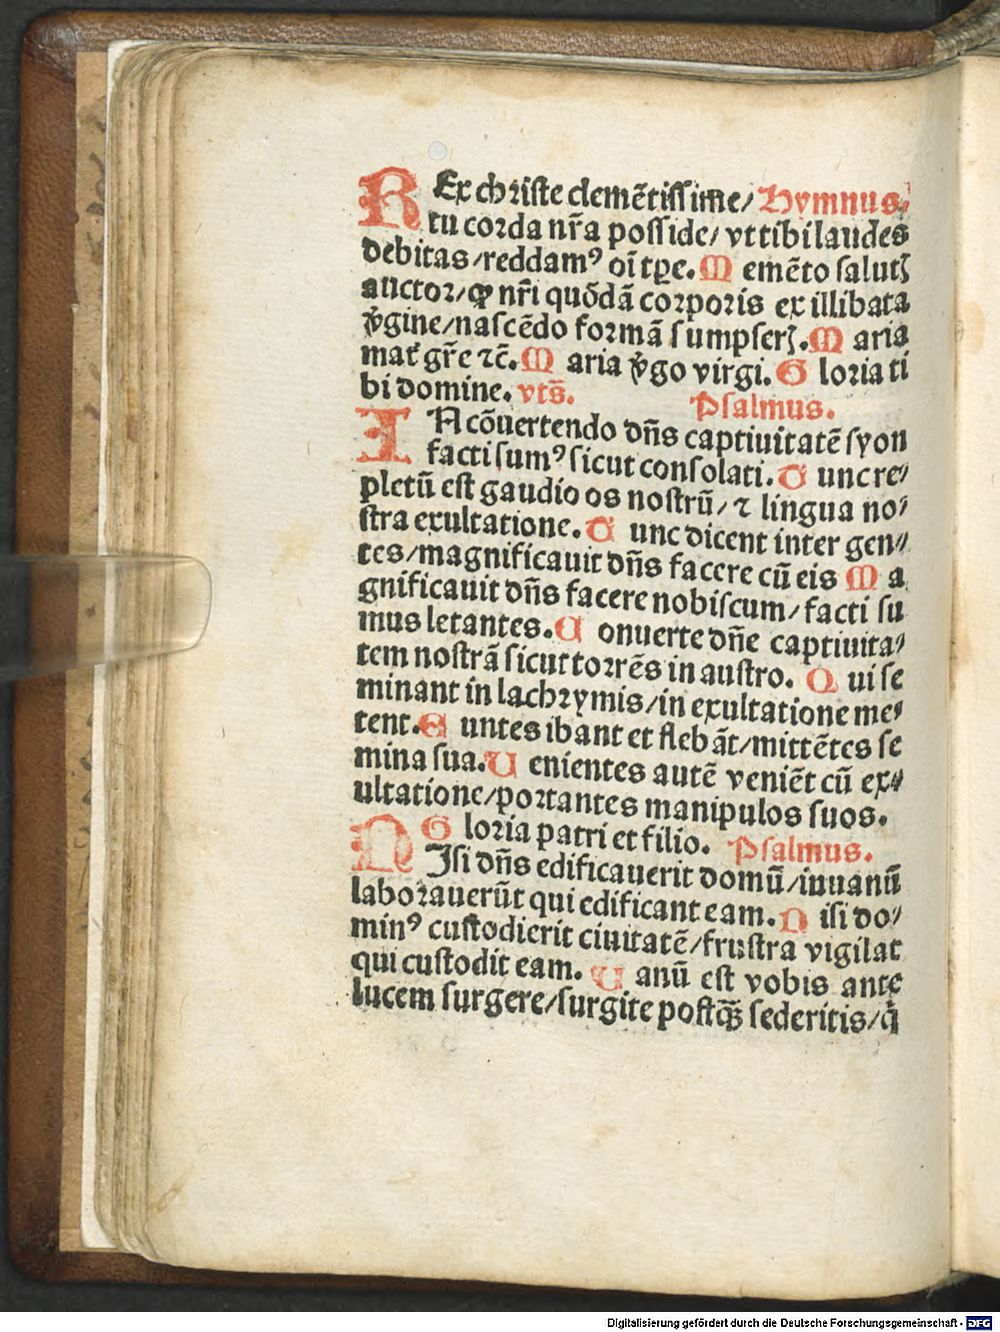 REx christe clemētissime/ Hymnus.
tu corda nr̄a posside/ vt tibi laudes
debitas/reddamꝰ oī tꝑe. M emēto salutꝭ
auctor/ꝙ nr̄i quōdā corporis ex illibata
v̓gine/nascēdo formā sumpserꝭ. M aria
mat̓ gr̄e ⁊c̄. M aria v̓go virgi. G loria ti
bi domine. vts̄. Psalmus.
IN cōuertendo dn̄s captiuitatē syon
facti sumꝰ sicut consolati. T unc re/
pletū est gaudio os nostrū/ ⁊ lingua no/
stra exultatione. T unc dicent inter gen/
tes/magnificauit dn̄s facere cū eis M a
gnificauit dn̄s facere nobiscum/ facti su
mus letantes. C onuerte dn̄e captiuita/
tem nostrā sicut torrēs in austro. Q ui se
minant in lachrymis/in exultatione me/
tent. E untes ibant et flebāt/mittētes se
mina sua. V enientes autē veniēt cū ex/
ultatione/portantes manipulos suos.
G loria patri et filio. Psalmus.
NIsi dn̄s edificauerit domū/inuanū
laborauerūt qui edificant eam. N isi do/
minꝰ custodierit ciuitatē/frustra vigilat
qui custodit eam. V anū est vobis ante
lucem surgere/surgite postꝙ̄ sederitis/q̇
Digitalisierung gefördert durch die Deutsche Forschungsgemeinschaft - DFG